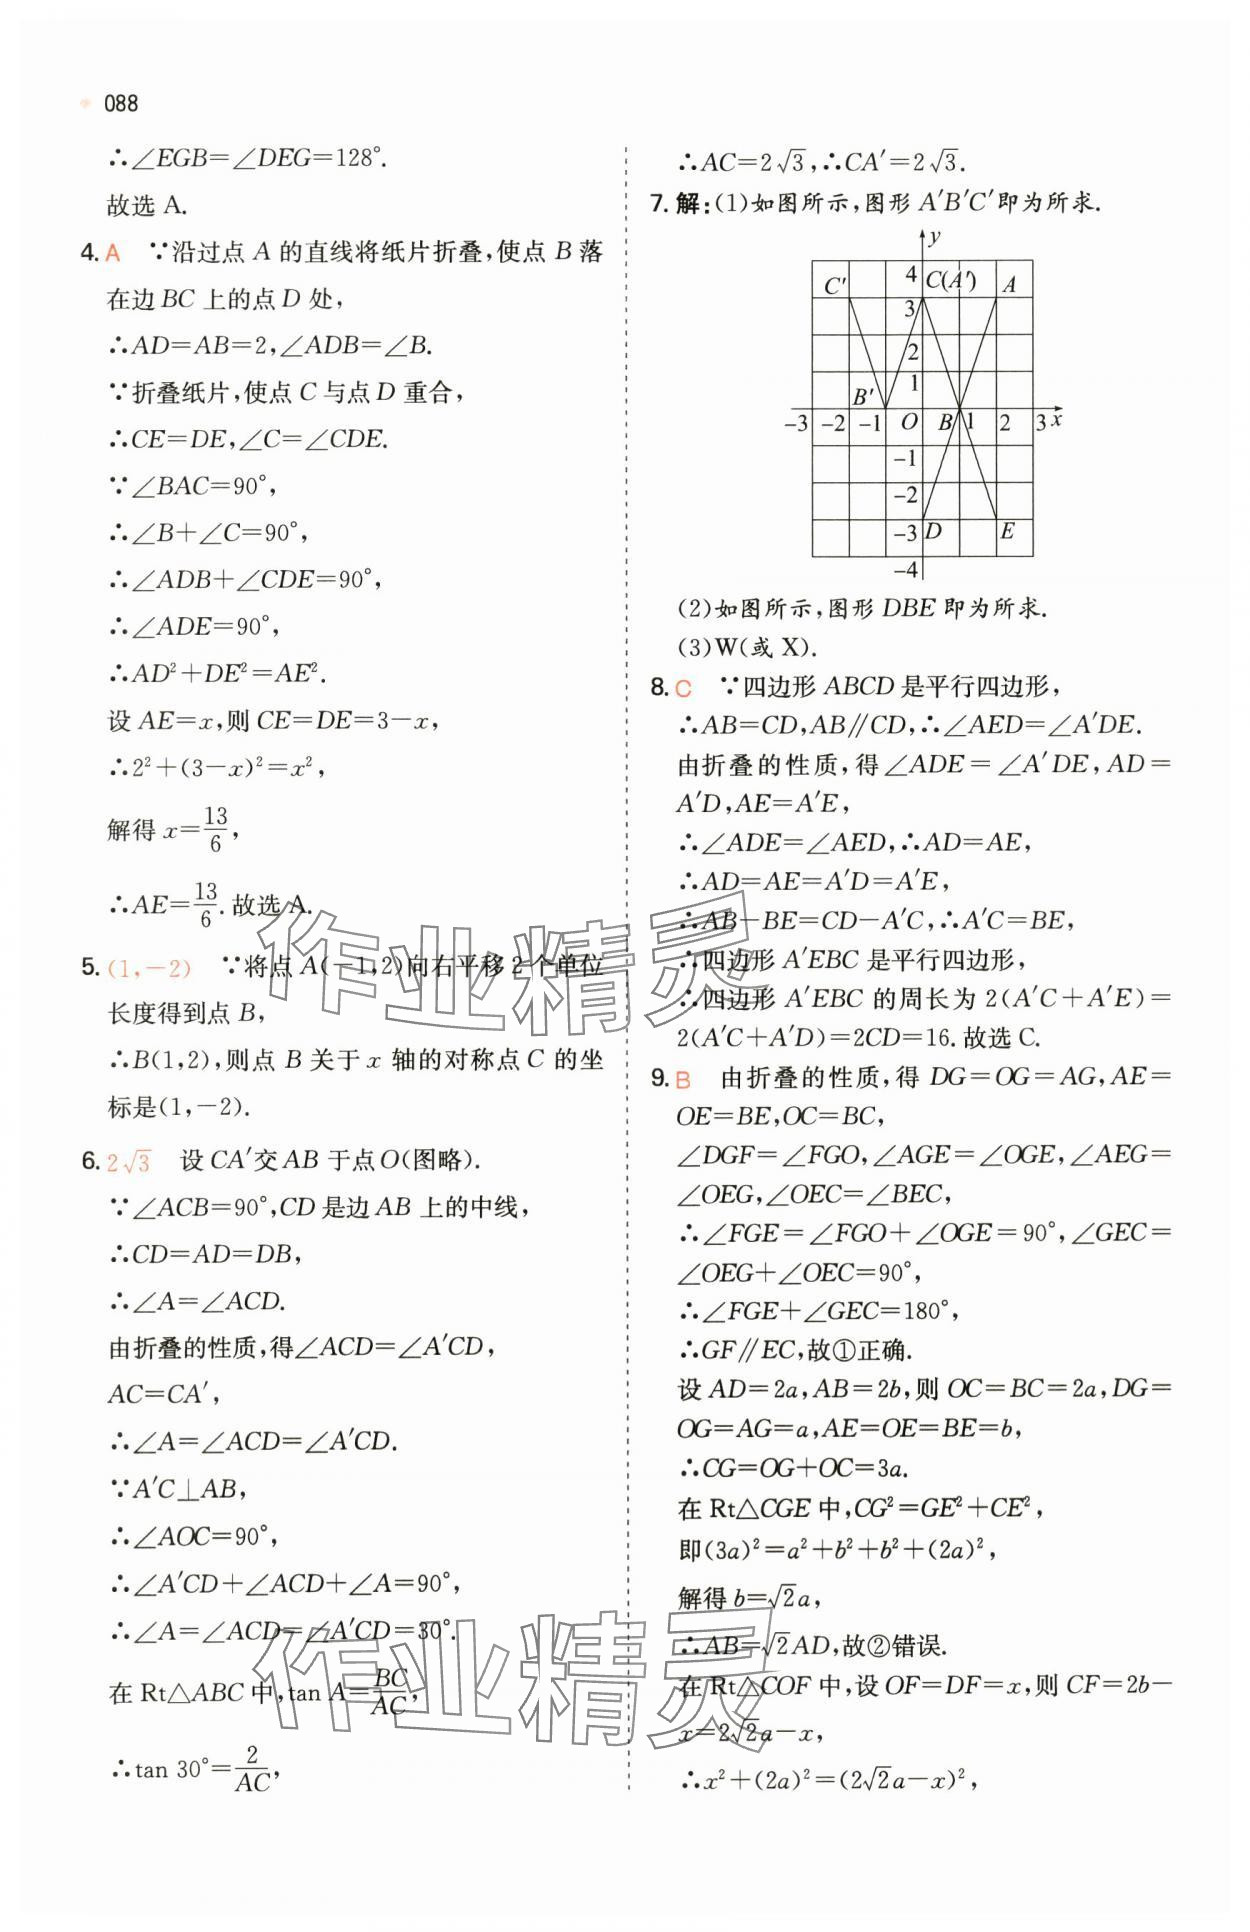 088
∴∠EGB=∠DEG=128°.
故选 A.
4. A ∵沿过点 A 的直线将纸片折叠,使点 B 落
在边 BC 上的点 D 处,
∴AD=AB=2,∠ADB=∠B.
∵折叠纸片,使点 C 与点 D 重合,
∴CE=DE,∠C=∠CDE.
∵∠BAC=90°,
∴∠B+∠C=90°,
∴∠ADB+∠CDE=90°,
∴∠ADE=90°,
∴AD²+DE²=AE².
设 AE=x,则 CE=DE=3-x,
∴2²+(3-x)²=x²,
解得 x=13/6,
∴AE=13/6.故选 A.
5. (1,-2) ∵将点 A(-1,2)向右平移 2 个单位
长度得到点 B,
∴B(1,2),则点 B 关于 x 轴的对称点 C 的坐
标是(1,-2).
6. 2√3 设 CA′交 AB 于点 O(图略).
∵∠ACB=90°,CD 是边 AB 上的中线,
∴CD=AD=DB,
∴∠A=∠ACD.
由折叠的性质,得∠ACD=∠A′CD,
AC=CA′,
∴∠A=∠ACD=∠A′CD.
∵A′C⊥AB,
∴∠AOC=90°,
∴∠A′CD+∠ACD+∠A=90°,
∴∠A=∠ACD=∠A′CD=30°.
在 Rt△ABC 中,tan A=BC/AC,
∴tan 30°=2/AC,
∴AC=2√3,∴CA′=2√3.
7. 解:(1)如图所示,图形 A′B′C′即为所求.
y
C′ 4 C(A′) A
3
2
B′ 1
-3 -2 -1 O B 1 2 3 x
-1
-2
-3 D E
-4
(2)如图所示,图形 DBE 即为所求.
(3)W(或 X).
8. C ∵四边形 ABCD 是平行四边形,
∴AB=CD,AB∥CD,∴∠AED=∠A′DE.
由折叠的性质,得∠ADE=∠A′DE,AD=
A′D,AE=A′E,
∴∠ADE=∠AED,∴AD=AE,
∴AD=AE=A′D=A′E,
∴AB-BE=CD-A′C,∴A′C=BE,
∴四边形 A′EBC 是平行四边形,
∴四边形 A′EBC 的周长为 2(A′C+A′E)=
2(A′C+A′D)=2CD=16.故选 C.
9. B 由折叠的性质,得 DG=OG=AG,AE=
OE=BE,OC=BC,
∠DGF=∠FGO,∠AGE=∠OGE,∠AEG=
∠OEG,∠OEC=∠BEC,
∴∠FGE=∠FGO+∠OGE=90°,∠GEC=
∠OEG+∠OEC=90°,
∴∠FGE+∠GEC=180°,
∴GF∥EC,故①正确.
设 AD=2a,AB=2b,则 OC=BC=2a,DG=
OG=AG=a,AE=OE=BE=b,
∴CG=OG+OC=3a.
在 Rt△CGE 中,CG²=GE²+CE²,
即(3a)²=a²+b²+b²+(2a)²,
解得 b=√2a,
∴AB=√2AD,故②错误.
在 Rt△COF 中,设 OF=DF=x,则 CF=2b-
x=2√2a-x,
∴x²+(2a)²=(2√2a-x)²,
作业精灵
作业精灵